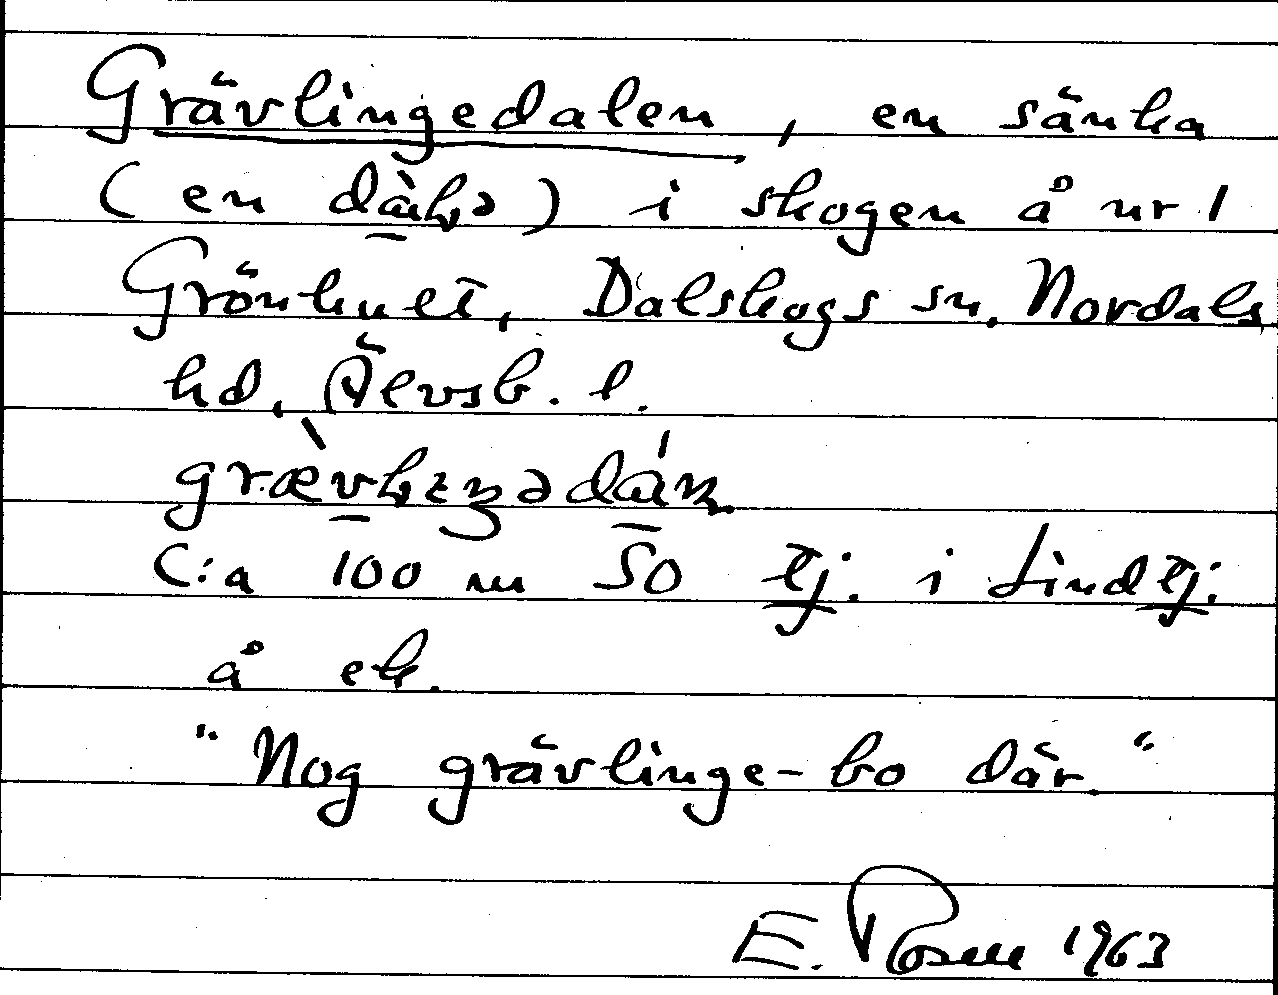 Grävlingedalen, en sänka
(en dàl̥ə) i skogen å nr 1
Grönhult, Dalskogs sn, Nordals
hd, Älvsb. l.
C:a 100 m SO tj. i Lindtj.
å ek.
"Nog grävlinge-bo där."
E. Rosell 1963